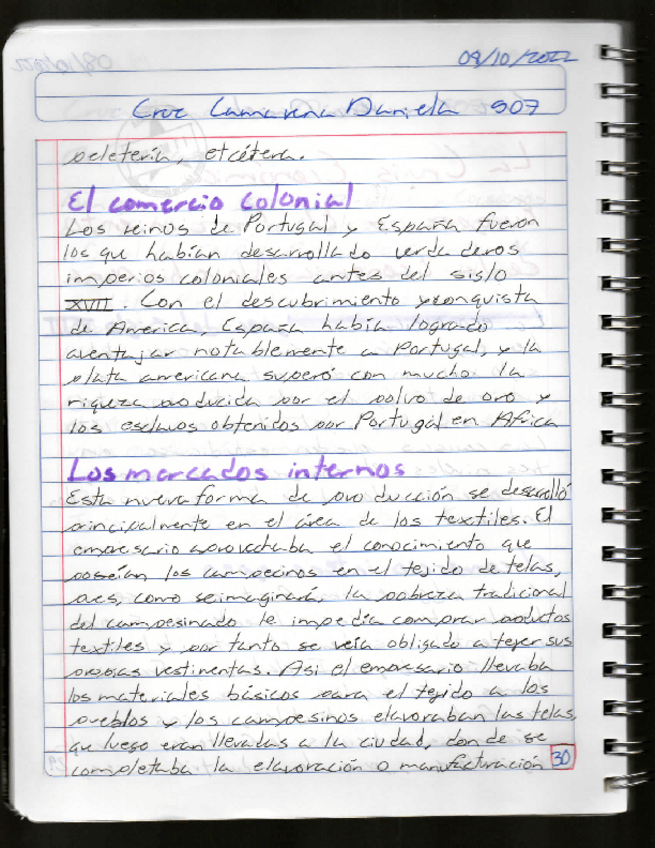 08/10/2022
Cruz Camarena Daniela 507
peletería, etcétera.
El comercio colonial
Los reinos de Portugal y España fueron
los que habían desarrollado verdaderos
imperios coloniales antes del siglo
XVII. Con el descubrimiento y conquista
de America, España había logrado
aventajar notablemente a Portugal, y la
plata americana superó con mucho la
riqueza producida por el polvo de oro y
los esclavos obtenidos por Portugal en Africa
Los mercados internos
Esta nueva forma de producción se desarolló
principalmente en el área de los textiles. El
empresario aprovechaba el conocimiento que
poseían los campecinos en el tejido de telas,
pues, como se imaginará, la pobreza tradicional
del campesinado le impedia comprar productos
textiles y por tanto se veía obligado a tejer sus
propias vestimentas. Asi el empresario llevaba
los materiales básicos para el tejido a los
pueblos y los campesinos elavoraban las telas,
que luego eran llevadas a la ciudad, donde se
completaba la elavoración o manufacturación
30